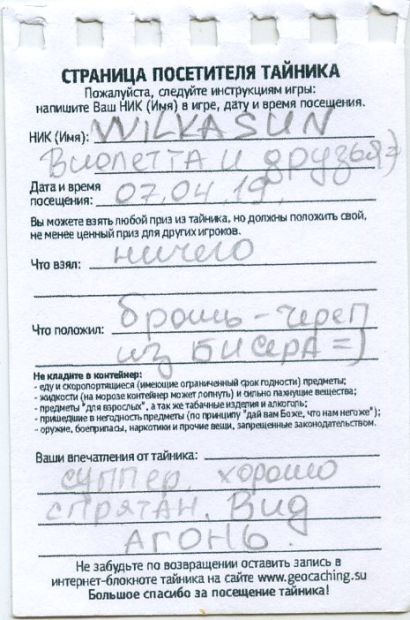 СТРАНИЦА ПОСЕТИТЕЛЯ ТАЙНИКА
Пожалуйста, следуйте инструкциям игры:
напишите Ваш НИК (Имя) в игре, дату и время посещения.
НИК (Имя): WILKASUN
Виолетта и друзья =)
Дата и время
посещения: 07.04.19
Вы можете взять любой приз из тайника, но должны положить свой,
не менее ценный приз для других игроков.
Что взял: ничего
Что положил: брошь - череп
из БИСЕРА =)
Не кладите в контейнер:
- еду и скоропортящиеся (имеющие ограниченный срок годности) предметы;
- жидкости (на морозе контейнер может лопнуть) и сильно пахнущие вещества;
- предметы "для взрослых", а так же табачные изделия и алкоголь;
- пришедшие в негодность предметы (по принципу "дай вам Боже, что нам негоже");
- оружие, боеприпасы, наркотики и прочие вещи, запрещенные законодательством.
Ваши впечатления от тайника:
суппер. хорошо
спрятан. Вид
АГОНЬ.
Не забудьте по возвращении оставить запись в
интернет-блокноте тайника на сайте www.geocaching.su
Большое спасибо за посещение тайника!